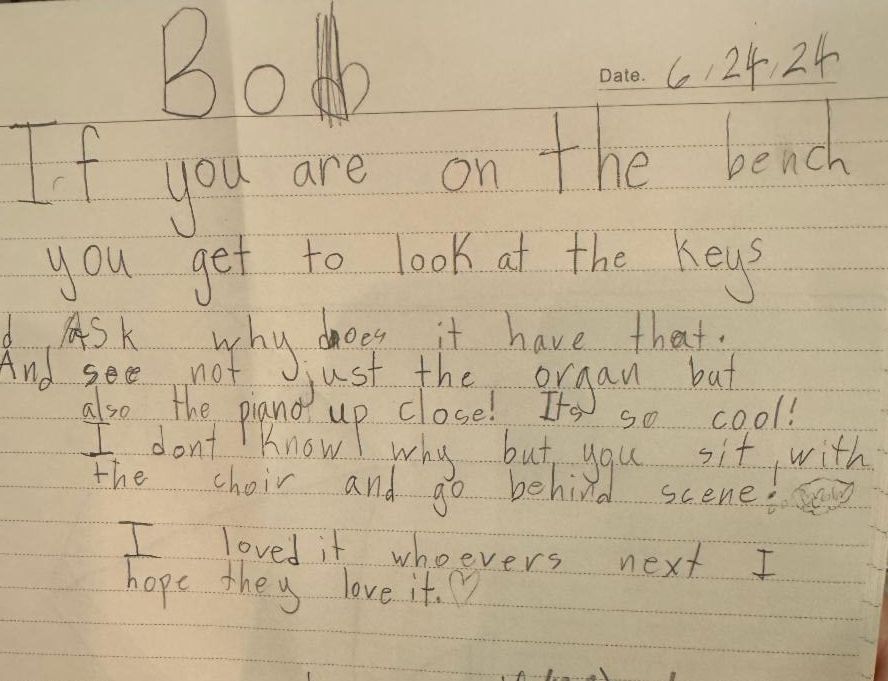 Bob
Date. 6/24/24
If you are on the bench
you get to look at the keys
d Ask why does it have that.
And see not just the organ but
also the piano up close! Its so cool!
I dont know why but you sit with
the choir and go behind scene!
I loved it whoevers next I
hope they love it.♡